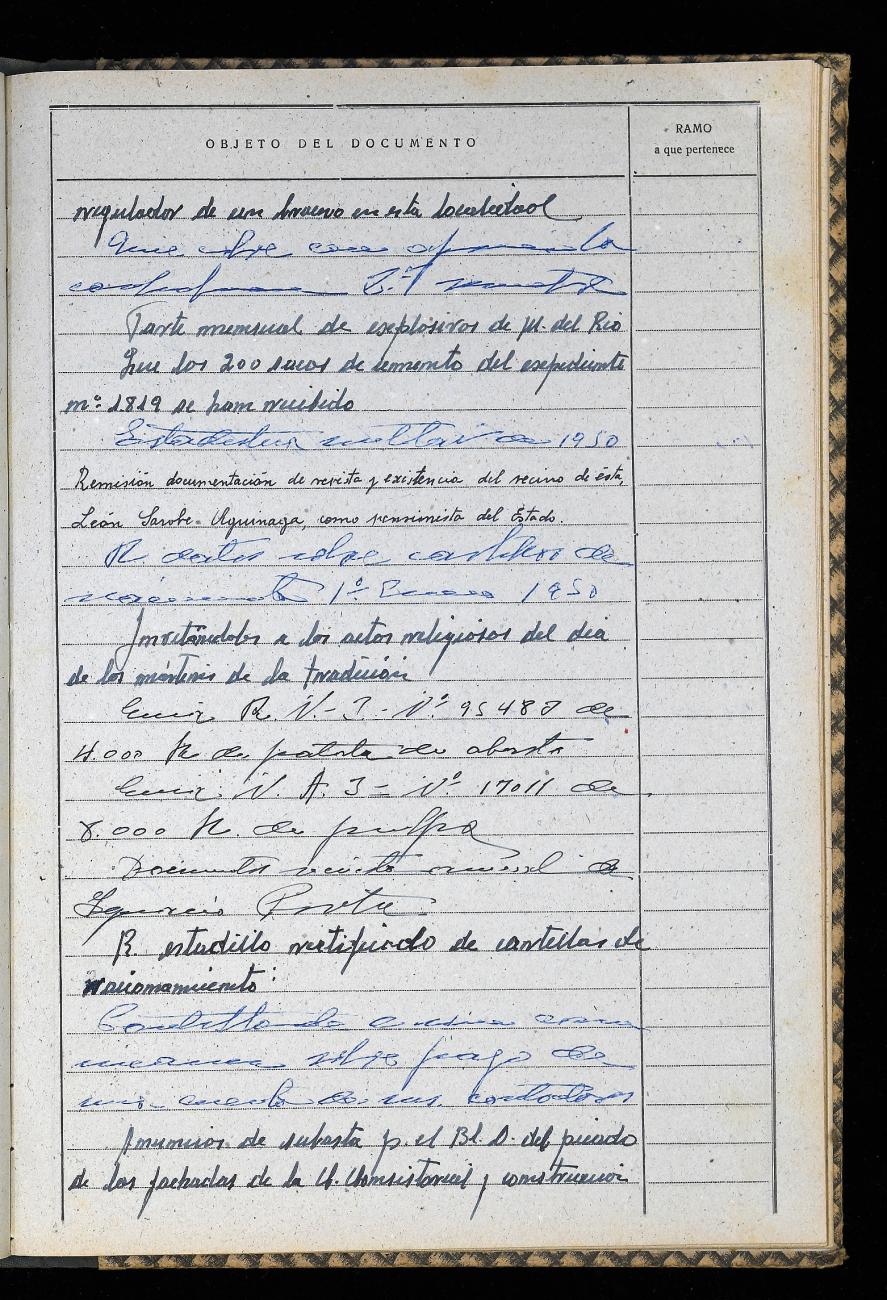 OBJETO DEL DOCUMENTO
RAMO
a que pertenece
regulador de un bravo en esta localidad
Parte mensual de explosivos de M. del Rio
Que los 200 sacos de cemento del expediente
nº 1819 se han recibido
Estadistica militar de 1950
Remisión documentación de revista y existencia del vecino de ésta,
León Sarobe Aguinaga, como pensionista del Estado.
R. datos sobre cartillas de
racionamiento 1º Enero 1950
Invitándoles a los actos religiosos del día
de los mártires de la tradición
R V-3- Nº 95488 de
4.000 K de patata de abasto
V. A. 3 = Nº 17011 de
8.000 K. de pulpa
Documentos revista anual de
Ignacio
R. estadillo rectificado de cartillas de
racionamiento
Contestando a
sobre pago de
cuenta de sus contadores
Anuncios de subasta p. el Bl. O. del picado
de las fachadas de la C. Consistorial y construccion